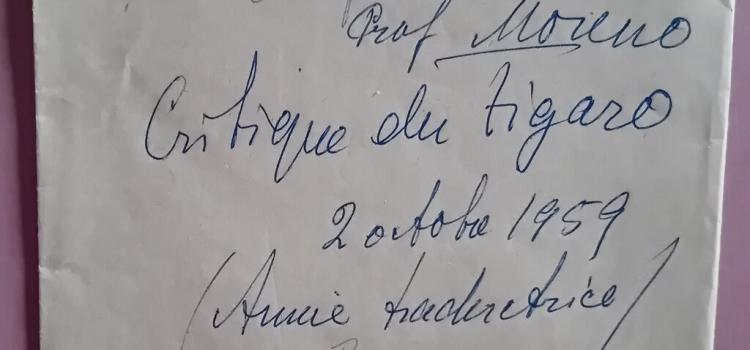 Prof Moreno
Critique du Figaro
2 octobre 1959
(Annie traductrice)